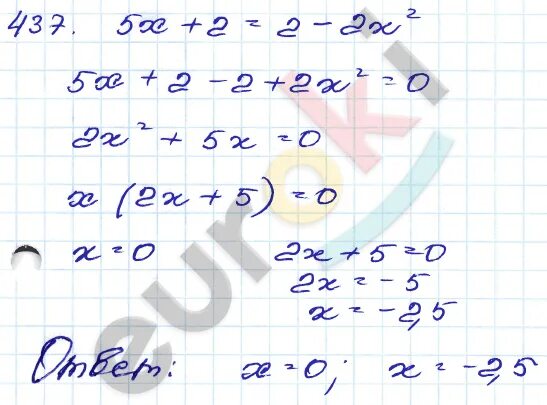 437. 5x + 2 = 2 - 2x²
5x + 2 - 2 + 2x² = 0
2x² + 5x = 0
x (2x + 5) = 0
x = 0 2x + 5 = 0
2x = -5
x = -2,5
Ответ: x = 0; x = -2,5
euroki